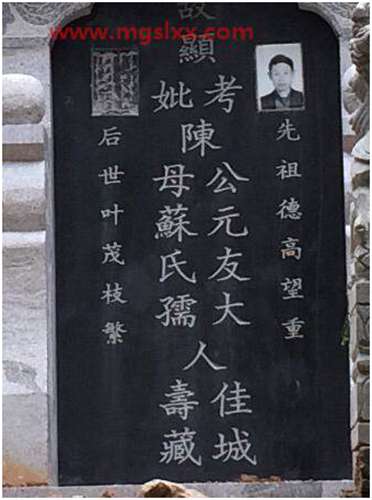 www.mgslxx.com
故
顯
考 妣
陳
公 母
元 蘇
友 氏
大 孺
人
佳 壽
城 藏
先祖德高望重
后世叶茂枝繁